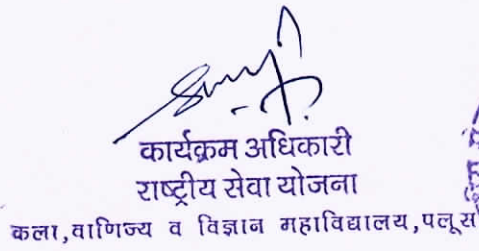 कार्यक्रम अधिकारी
राष्ट्रीय सेवा योजना
कला,वाणिज्य व विज्ञान महाविद्यालय,पलूस